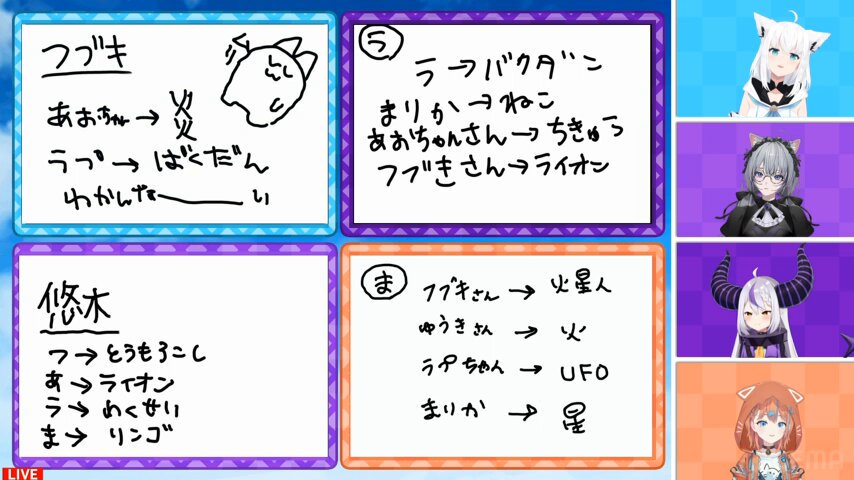 フブキ
あおちゃん→炎
ラプ→ばくだん
わかんなーい
ラ
ラ→バクダン
まりか→ねこ
あおちゃんさん→ちきゅう
フブきさん→ライオン
悠木
フ→とうもろこし
あ→ライオン
ラ→わくせい
ま→リンゴ
ま
フブキさん→火星人
ゆうきさん→火
ラプちゃん→UFO
まりか→星
LIVE